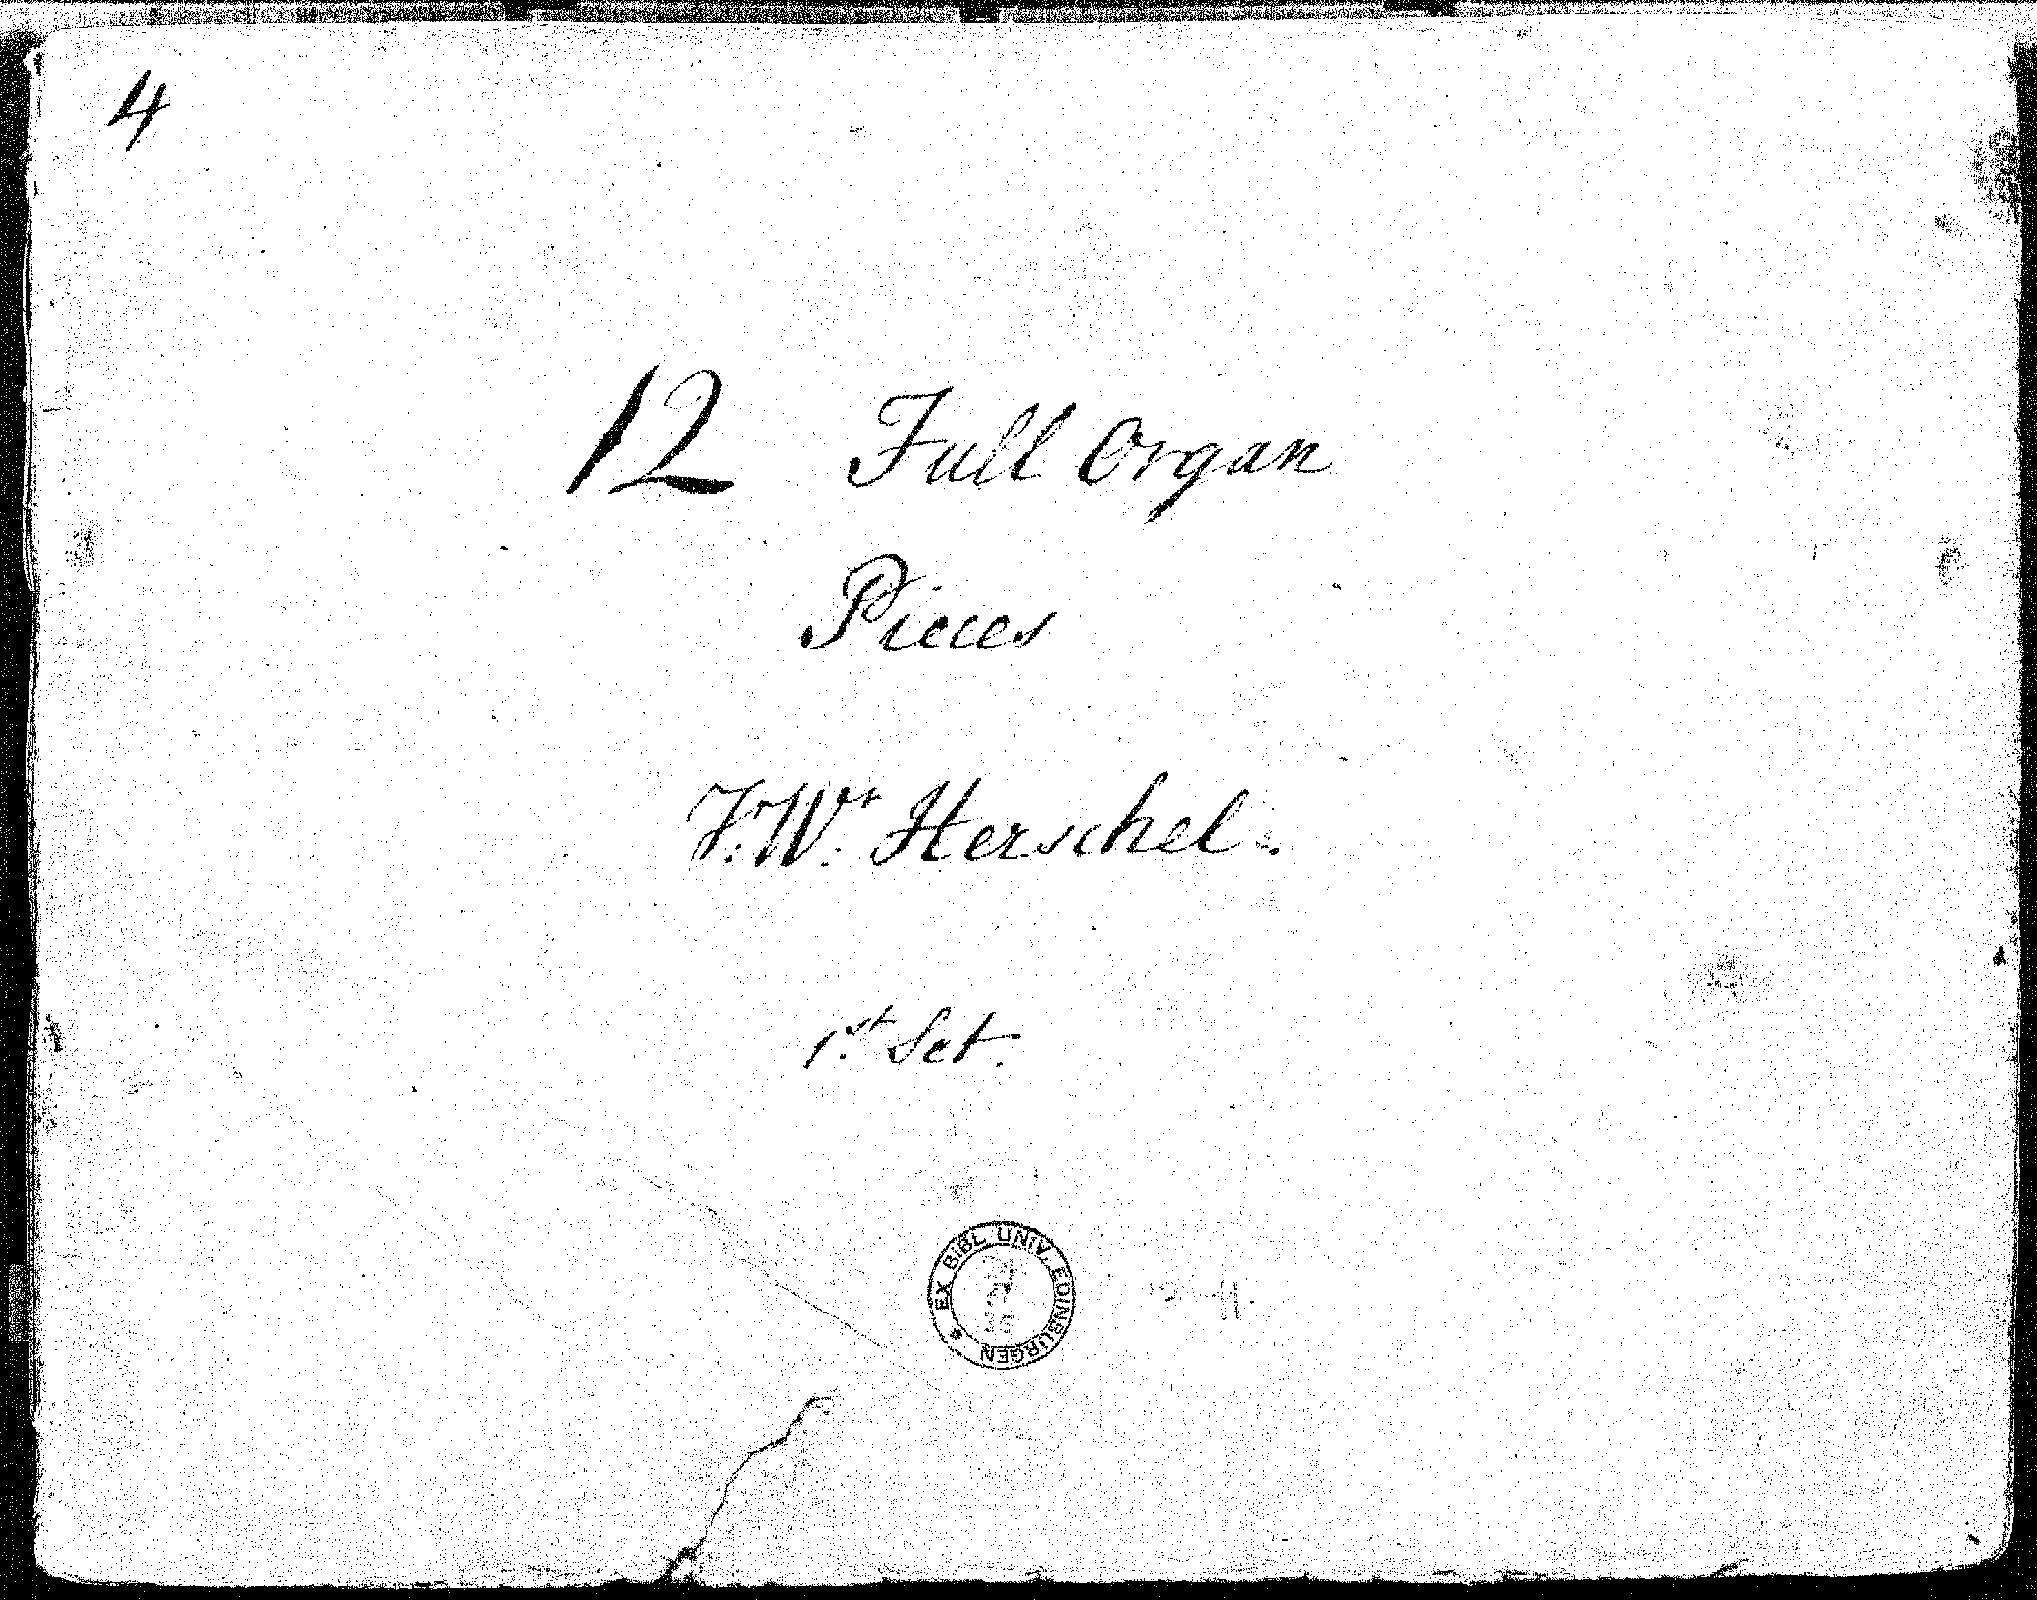 4
12 Full Organ
Pieces
Wm. Herschel.
1st. Set.
EX BIBL. UNIV. EDINBURGEN